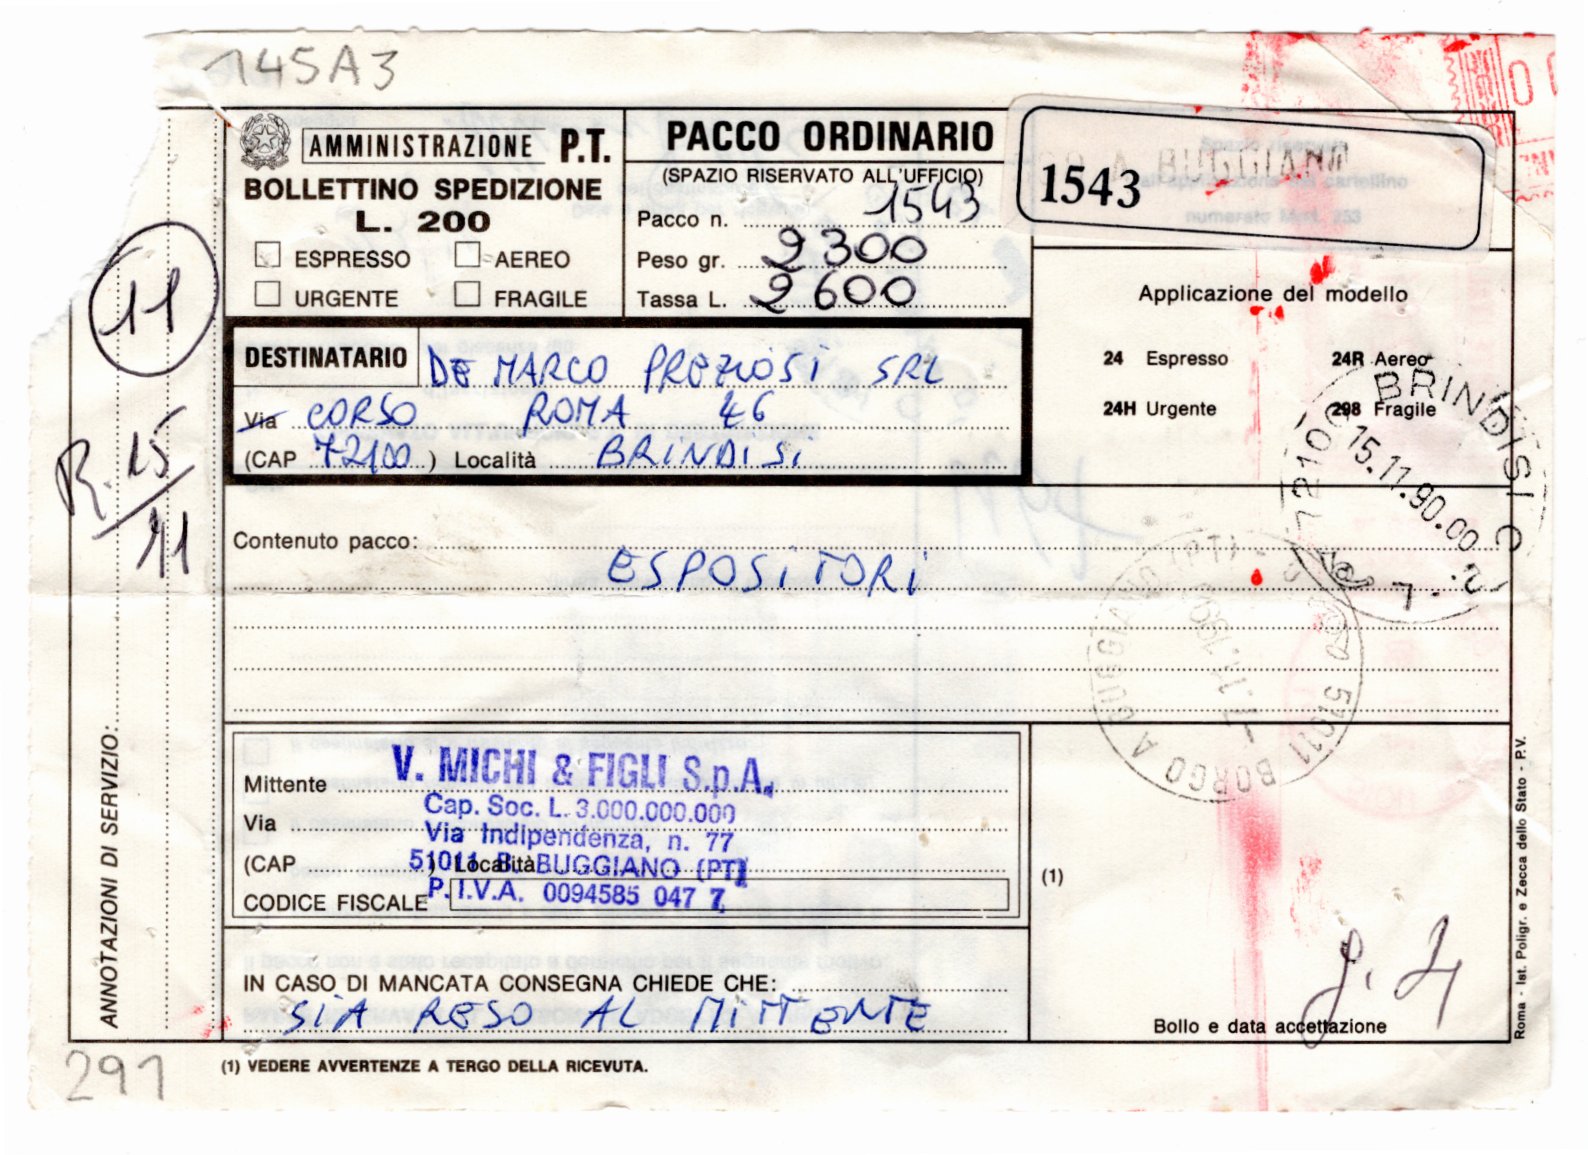 145A3
AMMINISTRAZIONE P.T.
BOLLETTINO SPEDIZIONE
L. 200
ESPRESSO AEREO
URGENTE FRAGILE
PACCO ORDINARIO
(SPAZIO RISERVATO ALL'UFFICIO)
Pacco n. 1543
Peso gr. 2300
Tassa L. 2600
A BUGGIANO
1543
Applicazione del modello
24 Espresso 24R Aereo
24H Urgente 298 Fragile
11
R. 15
11
DESTINATARIO DE MARCO PREZIOSI SRL
Via CORSO ROMA 46
(CAP 72100) Località BRINDISI
72100 BRINDISI C
15.11.90.00
Contenuto pacco: ESPOSITORI
51011 BORGO A BUGGIANO (PT)
ANNOTAZIONI DI SERVIZIO:
Mittente V. MICHI & FIGLI S.p.A.
Cap. Soc. L. 3.000.000.000
Via Via Indipendenza, n. 77
(CAP 51011 ) Località B. BUGGIANO (PT)
CODICE FISCALE P. I.V.A. 0094585 047 7
(1)
IN CASO DI MANCATA CONSEGNA CHIEDE CHE:
SIA RESO AL MITTENTE
Bollo e data accettazione
Roma - Ist. Poligr. e Zecca dello Stato - P.V.
291
(1) VEDERE AVVERTENZE A TERGO DELLA RICEVUTA.